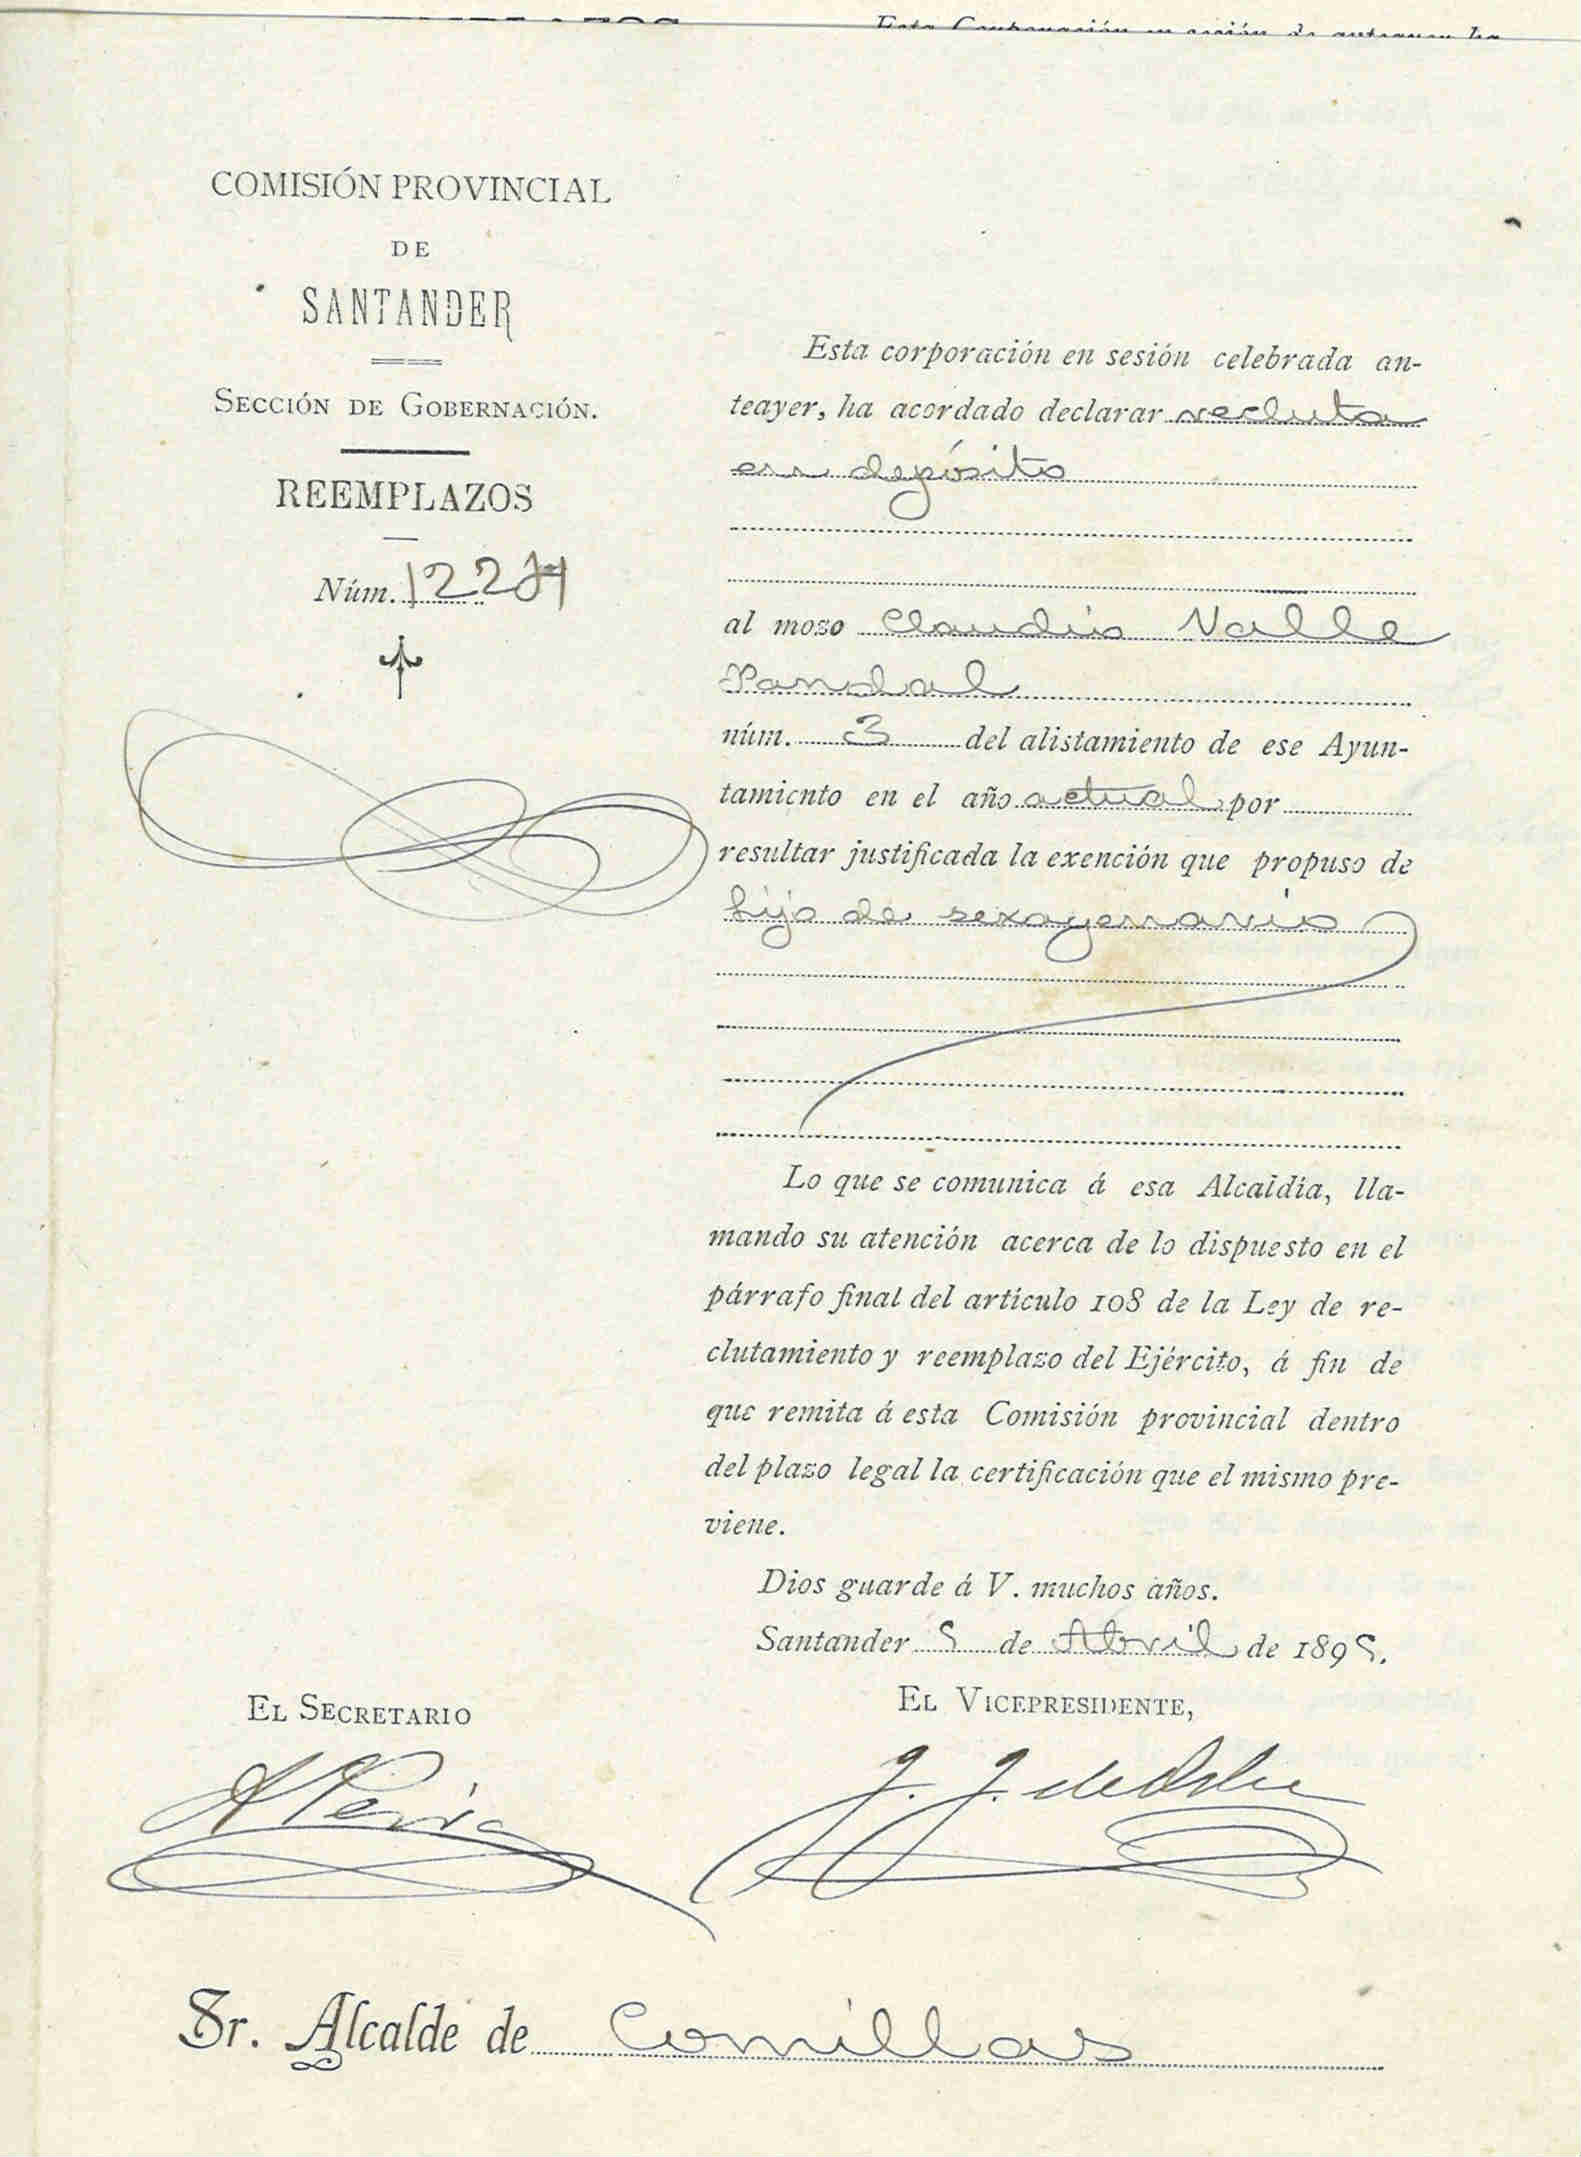 Esta Corporación en sesión de anteayer ha
COMISIÓN PROVINCIAL
DE
SANTANDER
SECCIÓN DE GOBERNACIÓN.
REEMPLAZOS
Núm.
Esta corporación en sesión celebrada an-
teayer, ha acordado declarar recluta
en depósito
al mozo Claudio Valle
Pandal
núm. 3 del alistamiento de ese Ayun-
tamiento en el año actual por
resultar justificada la exención que propuso de
hijo de sexagenario
Lo que se comunica á esa Alcaldía, lla-
mando su atención acerca de lo dispuesto en el
párrafo final del artículo 108 de la Ley de re-
clutamiento y reemplazo del Ejército, á fin de
que remita á esta Comisión provincial dentro
del plazo legal la certificación que el mismo pre-
viene.
Dios guarde á V. muchos años.
Santander 5 de Abril de 1895.
EL SECRETARIO
EL VICEPRESIDENTE,
Sr. Alcalde de Comillas